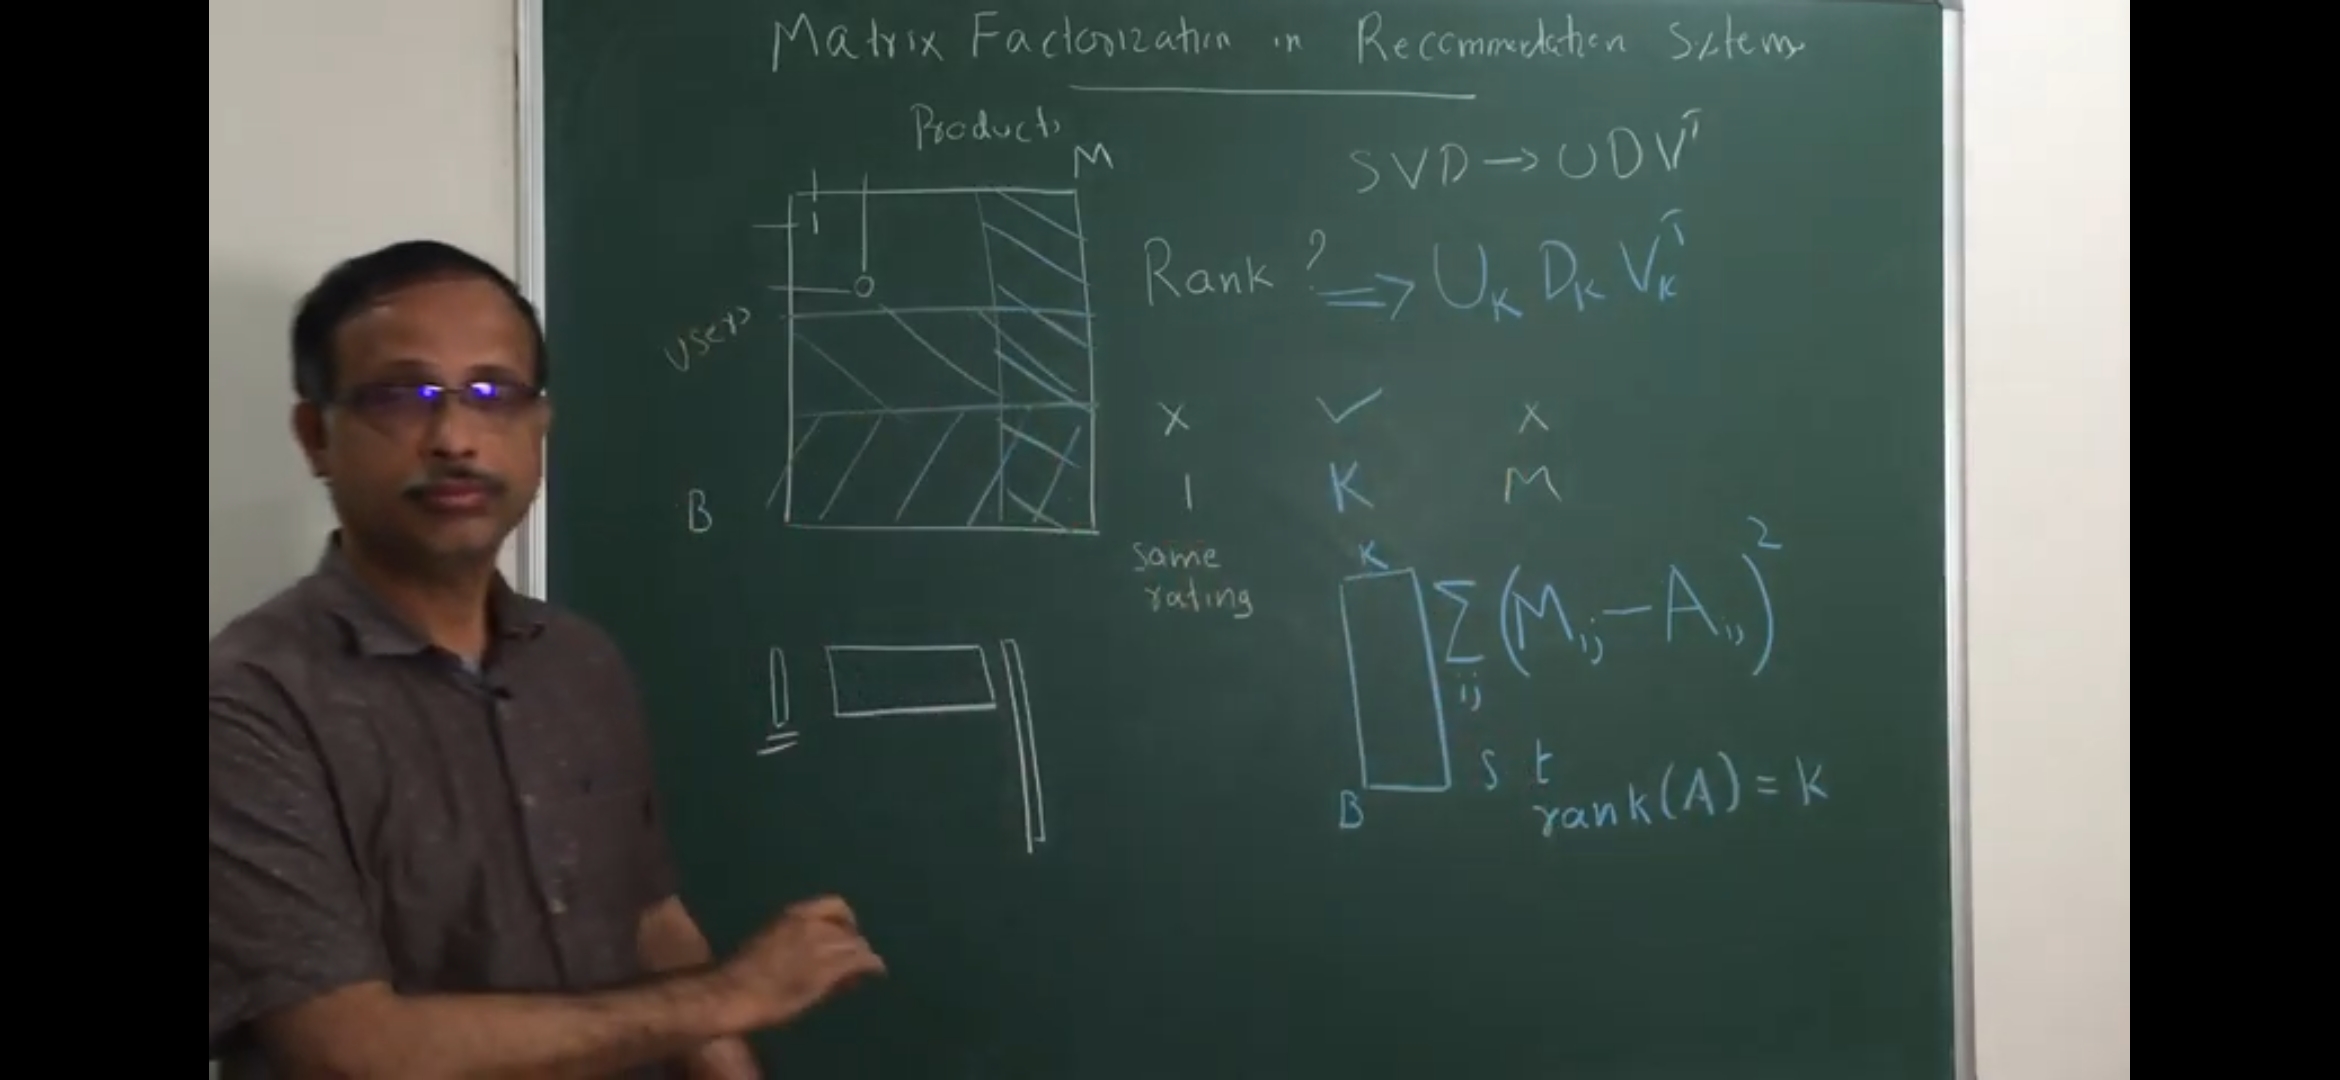 Matrix Factorization in Recommendation Systems
Products
M
SVD → U D V^T
Rank ? ⇒ U_K D_K V_K^T
users
1
0
x ✓ x
1 K M
B
same
rating
K
∑_ij (M_ij - A_ij)^2
B
s t
rank(A) = k